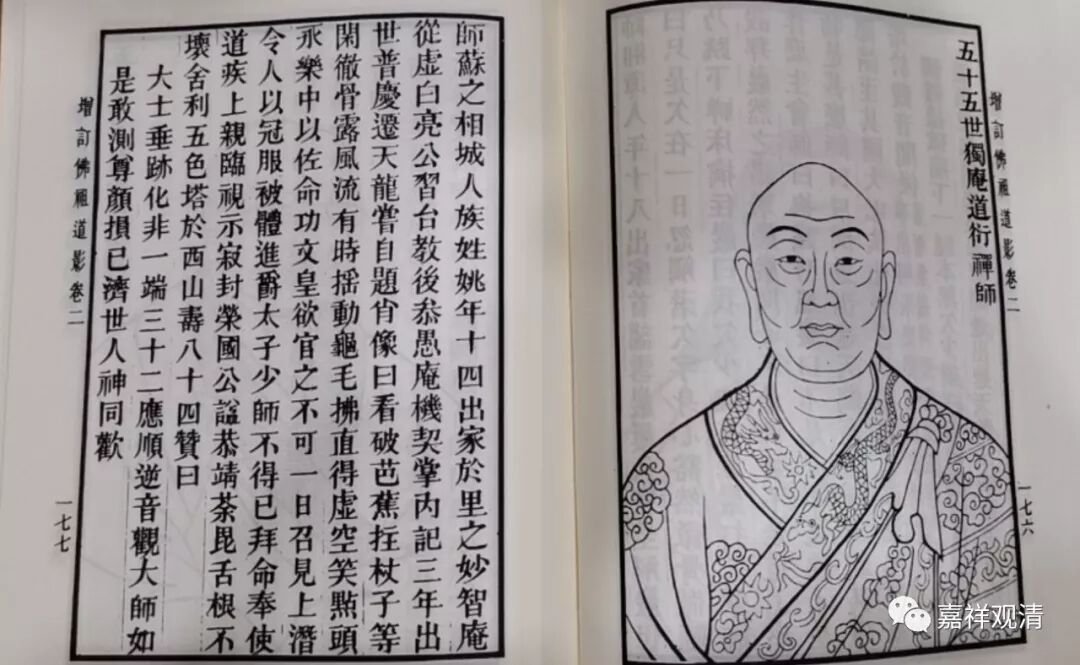 增訂佛祖道影卷二
五十五世獨庵道衍禪師
一七六
師蘇之相城人族姓姚年十四出家於里之妙智庵
從虛白亮公習台教後叅愚庵機契掌內記三年出
世普慶遷天龍嘗自題肖像曰看破芭蕉拄杖子等
閑徹骨露風流有時搖動龜毛拂直得虛空笑點頭
永樂中以佐命功文皇欲官之不可一日召見上潛
令人以冠服被體進爵太子少師不得已拜命奉使
道疾上親臨視示寂封榮國公諡恭靖荼毘舌根不
壞舍利五色塔於西山壽八十四贊曰
大士垂跡化非一端三十二應順逆音觀大師如
是敢測尊顏損已濟世人神同歡
增訂佛祖道影卷二
一七七
嘉祥观清